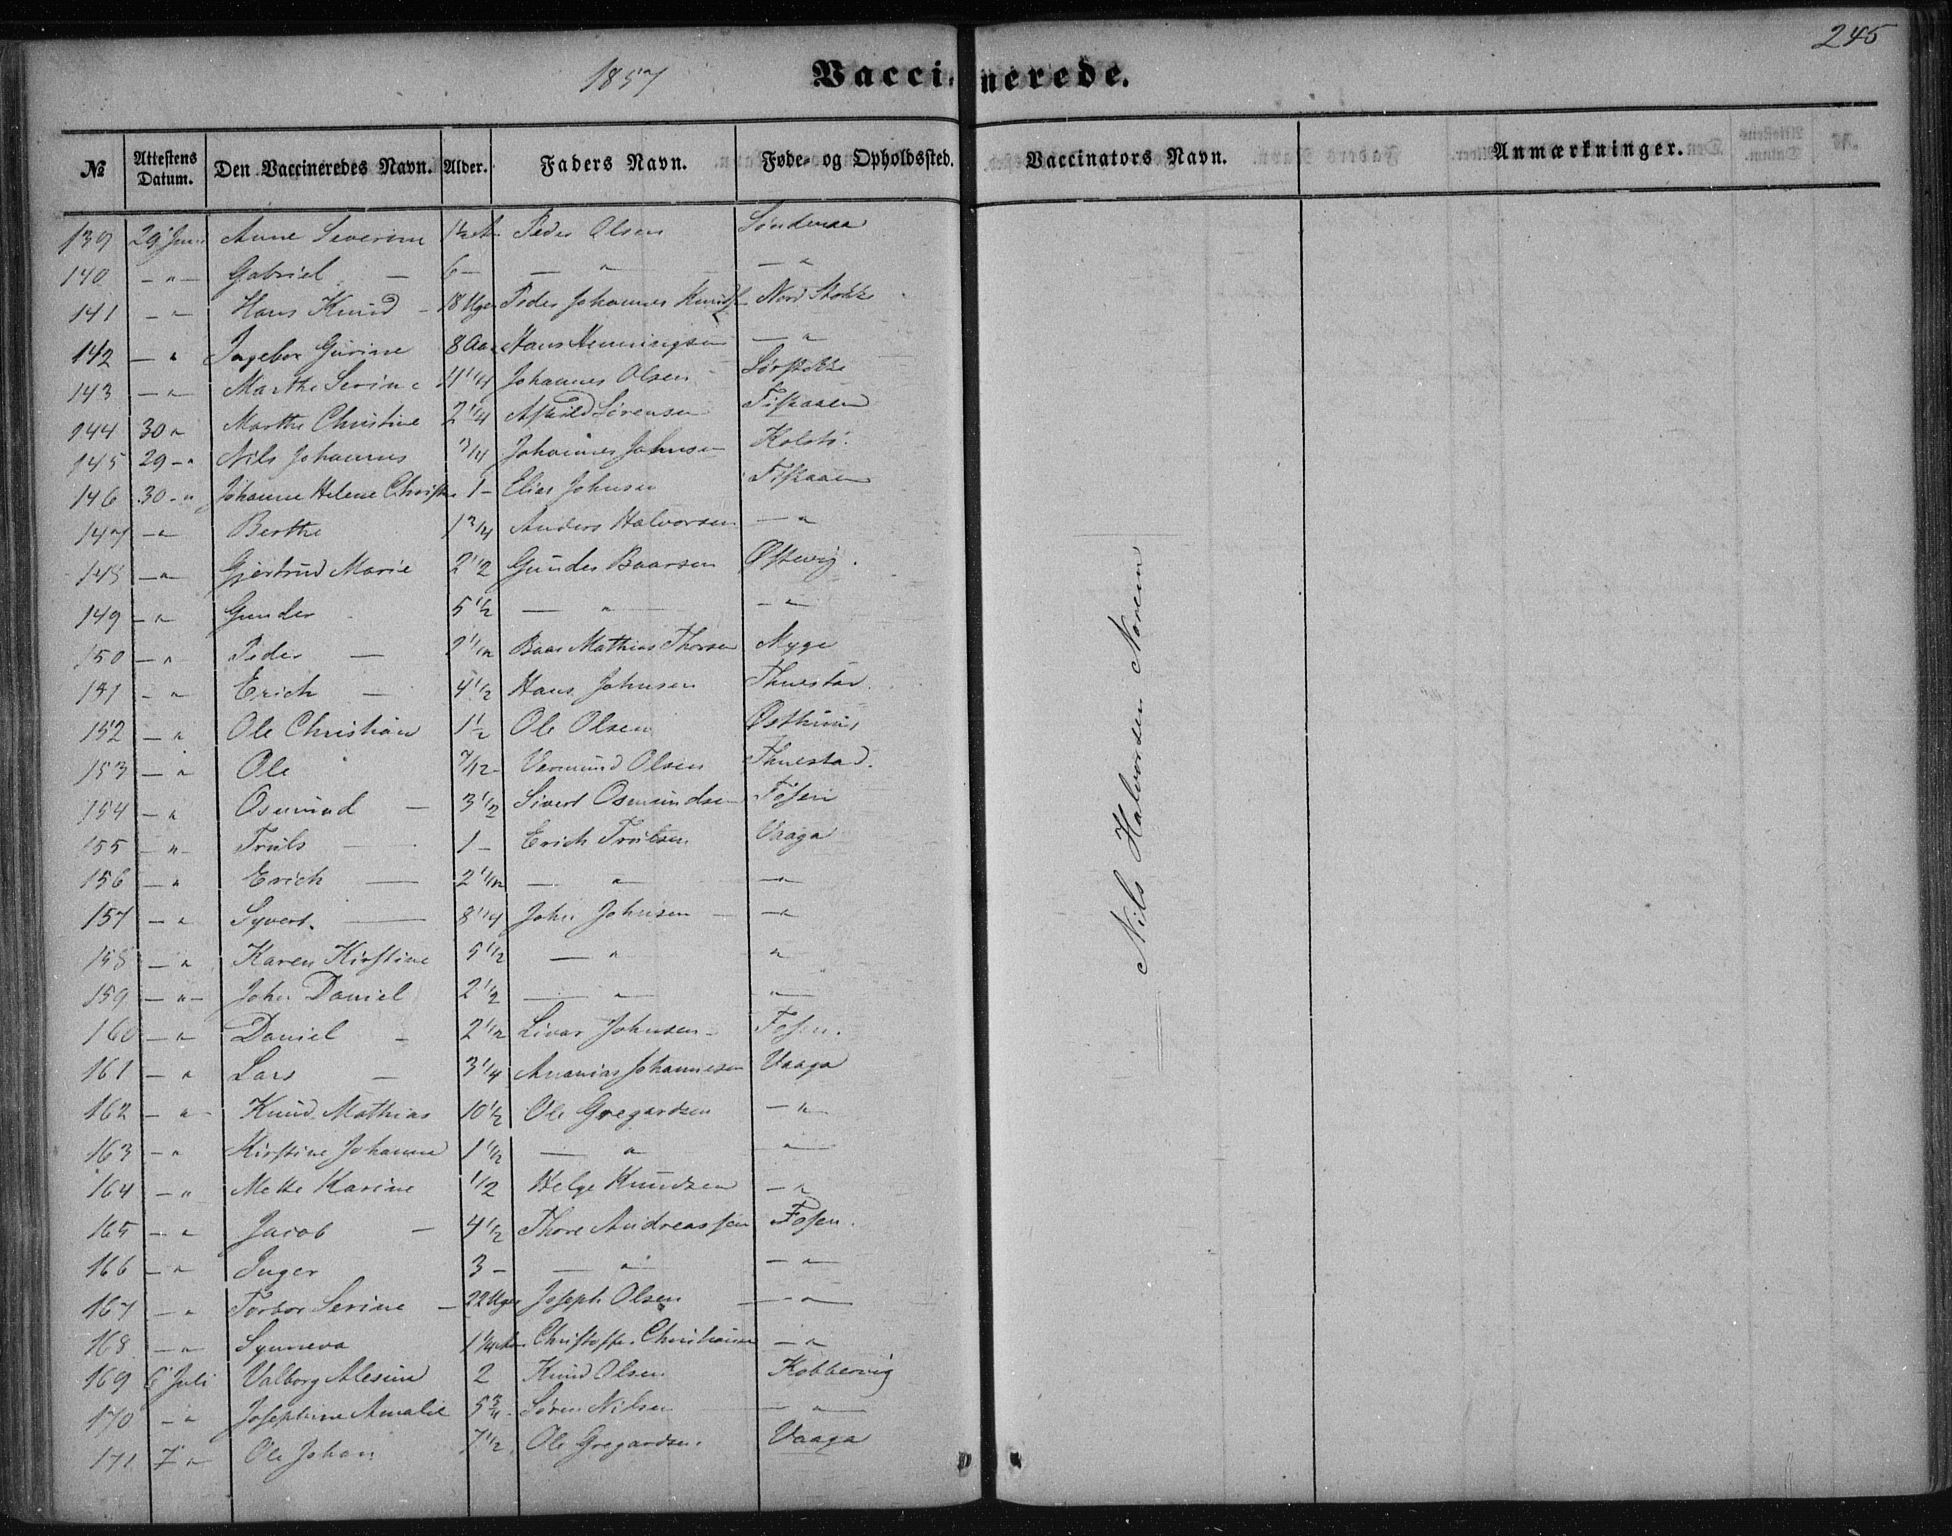 245
1857
Vaccinerede.
№ Attestens Datum. Den Vaccineredes Navn. Alder. Faders Navn. Føde- og Opholdssted. Vaccinators Navn. Anmærkninger.
139 29 Juni Anne Severine 1½ Aar Peder Olsen Søndenaa
140 — " — Gabriel — 6 — — " — — "
141 — " Hans Knud — 18 Uger Peder Johannes Nord Stokke
142 — " Ingebor Gurine 8 Aar Hans Henningsen — "
143 — " — Marthe Serine 4 1/4 Johannes Olsen Sørstokke
144 30 " Marthe Christine 2 1/4 Askild Sørensen Fiskaaen
145 29 — " Nils Johannes 3/4 Johannes Johnsen Kolstø
146 30 — " Johanne Helene 1 — Elias Johnsen Fiskaaen
147 — " — Berthe 1 3/4 Anders Halvorsen — "
148 — " — Gjertrud Marie 2 1/2 Gunder Baarsen Østevig.
149 — " Gunder 5 1/2 — " — — "
150 — " Peder — 2 1/2 Baar Mathias Thorsen Myge
151 — " Erich — 4 1/2 Hans Johnsen Thuestad.
152 — " Ole Christian 1½ Ole Olsen Østhuus
153 — " Ole 7/12 — Vermund Olsen Thuestad.
154 — " Osmund — 3 1/2 Sivert Osmundsen Fosen
155 — " — Truls — 1 — Erich Trulsen Vaaga
156 — " Erich — 2 1/2 — " — — " —
157 — " Syvert. — 8 1/4 John Johnsen — — " —
158 — " Karen Kirstine 5 1/2 — " "
159 — " — John Daniel 2 1/2 — " — — " —
160 — " Daniel — 2 1/2 Livar Johnsen — Fosen.
161 — " Lars — 3 1/4 Ananias Johannesen Vaaga
162 — " — Knud Mathias 10 1/2 Ole Gregardsen — " —
163 — " Kirstine Johanne 1 1/2 — " — " —
164 — " Mette Karine 1/2 Helge Knudsen — "
165 — " Jacob — 4 1/2 Thore Andreassen Fosen.
166 — " Inger 3 — — " — — " —
167 — " Torbor Serine — 22 Uger Joseph Olsen — " —
168 — " Synneva 1 1/4 Aar Christoffer Christiansen — "
169 6 Juli Valborg Alesine 2 Knud Olsen Kobbervig
170 — " Josephine Amalie 5 3/4 Søren Nilsen — " —
171 7 " Ole Johan 7 1/2 Ole Gregardsen. Vaaga
Nils Halvorsen Norem